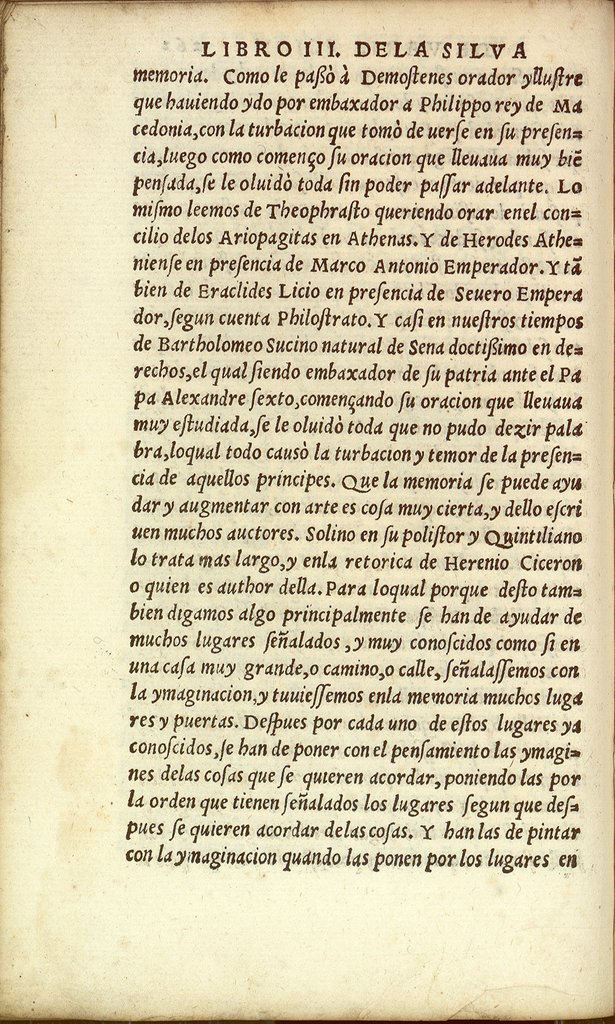 LIBRO III. DELA SILVA
memoria. Como le paßò à Demoſtenes orador ylluſtre
que hauiendo ydo por embaxador a Philippo rey de Ma
cedonia, con la turbacion que tomò de uerſe en ſu preſen=
cia, luego como començo ſu oracion que lleuaua muy biē
penſada, ſe le oluidò toda ſin poder paſſar adelante. Lo
miſmo leemos de Theophraſto queriendo orar enel con=
cilio delos Ariopagitas en Athenas. Y de Herodes Athe=
nienſe en preſencia de Marco Antonio Emperador. Y tā
bien de Eraclides Licio en preſencia de Seuero Empera
dor, ſegun cuenta Philoſtrato. Y caſi en nueſtros tiempos
de Bartholomeo Sucino natural de Sena doctißimo en de=
rechos, el qual ſiendo embaxador de ſu patria ante el Pa
pa Alexandre ſexto, començando ſu oracion que lleuaua
muy eſtudiada, ſe le oluidò toda que no pudo dezir pala
bra, loqual todo causò la turbacion y temor de la preſen=
cia de aquellos principes. Que la memoria ſe puede ayu
dar y augmentar con arte es coſa muy cierta, y dello eſcri
uen muchos auctores. Solino en ſu poliſtor y Quintiliano
lo trata mas largo, y enla retorica de Herenio Ciceron
o quien es author della. Para loqual porque deſto tam=
bien digamos algo principalmente ſe han de ayudar de
muchos lugares ſeñalados, y muy conoſcidos como ſi en
una caſa muy grande, o camino, o calle, ſeñalaſſemos con
la ymaginacion, y tuuieſſemos enla memoria muchos luga
res y puertas. Deſpues por cada uno de eſtos lugares ya
conoſcidos, ſe han de poner con el penſamiento las ymagi=
nes delas coſas que ſe quieren acordar, poniendo las por
la orden que tienen ſeñalados los lugares ſegun que deſ=
pues ſe quieren acordar delas coſas. Y han las de pintar
con la ymaginacion quando las ponen por los lugares en